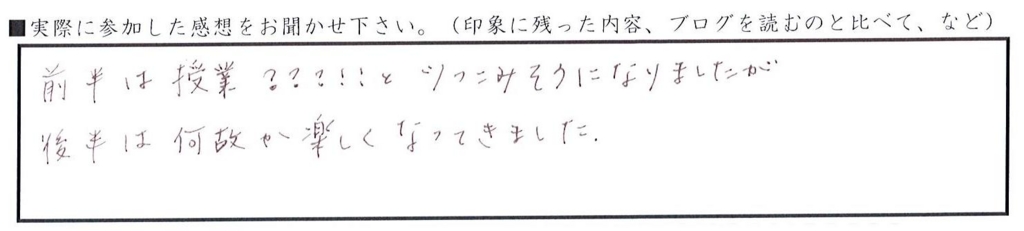 ■実際に参加した感想をお聞かせ下さい。（印象に残った内容、ブログを読むのと比べて、など）
前半は授業???!!とツッこみそうになりましたが
後半は何故か楽しくなってきました.